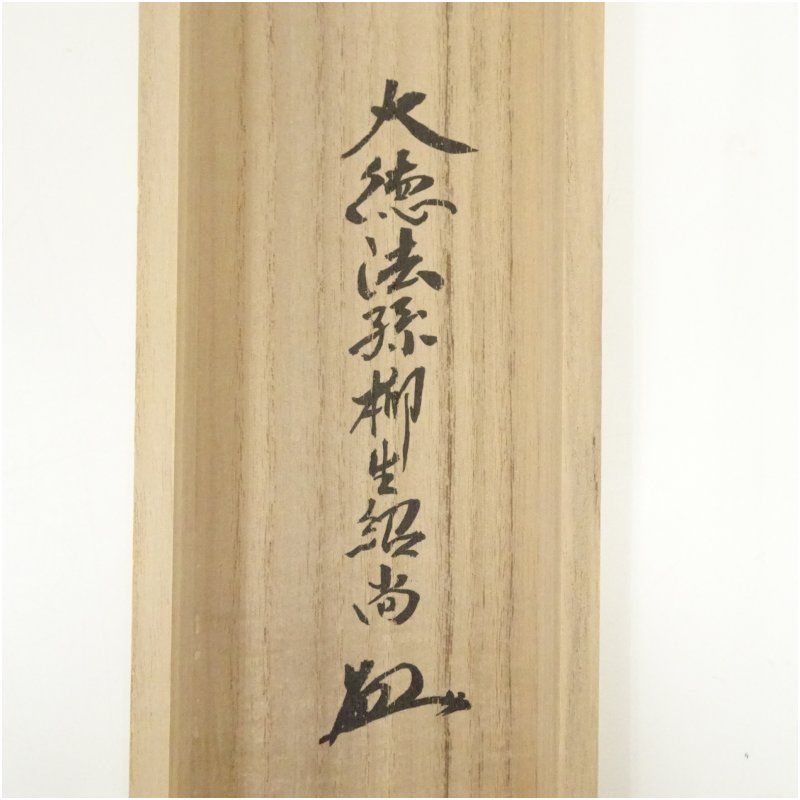 大徳法孫柳生紹尚